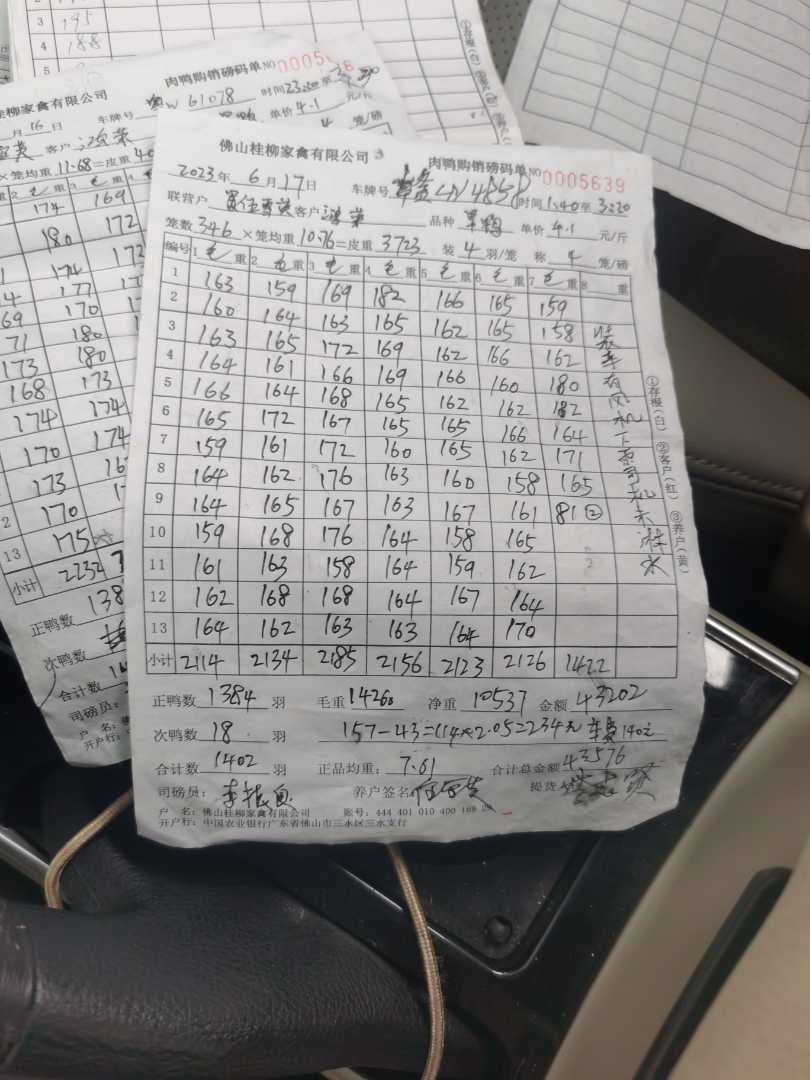 195
4 188
肉鸭购销磅码单 NO 0005
桂柳家禽有限公司
车牌号 W 61078 时间 23:20 至
月 16 日 单价 4.1 元/斤
客户
×笼均重 11.68=皮重 笼/磅
174 169
180 172
174 172
177
69 170
71 180
173 180
168 173
174 174
170 174
173
2 170
13 175
小计 2232
正鸭数 138
次鸭数
合计数
司磅员:
户 名:
开户行:
佛山桂柳家禽有限公司 3 肉鸭购销磅码单 NO 0005639
2023年 6 月 17 日 车牌号 时间 1:40 至 3:20
联营户 客户 品种 单价 4.1 元/斤
笼数 346 ×笼均重 10.76=皮重 3723 装 4 羽/笼 称 4 笼/磅
编号 1 毛 重 2 毛 重 3 毛 重 4 毛 重 5 毛 重 6 毛 重 7 毛 重 8 重
1 163 159 169 182 166 165 159
2 160 164 163 165 162 165 158
3 163 165 172 169 162 166 162
4 164 161 166 169 166 160 180
5 166 164 168 165 162 162 182
6 165 172 167 165 165 166 164
7 159 161 172 160 165 162 171
8 164 162 176 163 160 158 165
9 164 165 167 163 167 161 81②
10 159 168 176 164 158 165
11 161 163 158 164 159 162
12 162 168 168 164 167 164
13 164 162 163 163 164 170
小计 2114 2134 2185 2156 2123 2126 1422
装车有风机下雨司机未淋水
①存根(白) ②客户(红) ③养户(黄)
正鸭数 1384 羽 毛重 14260 净重 10537 金额 43202
次鸭数 18 羽 157-43=114×2.05=234元 车费140元
合计数 1402 羽 正品均重: 7.61 合计总金额 43576
司磅员: 养户签名 提货人
户 名: 佛山桂柳家禽有限公司 账号: 444 401 010 400 169 28
开户行: 中国农业银行广东省佛山市三水区三水支行